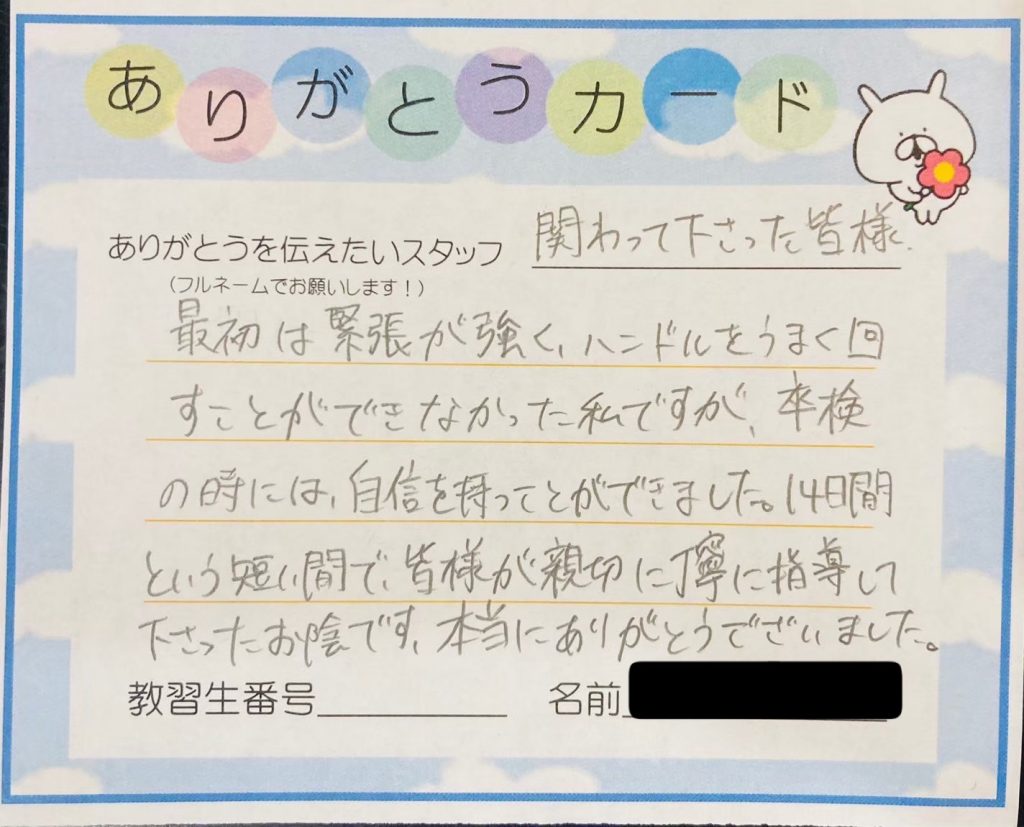 ありがとうカード
ありがとうを伝えたいスタッフ 関わって下さった皆様.
(フルネームでお願いします!)
最初は緊張が強く、ハンドルをうまく回
すことができなかった私ですが、卒検
の時には、自信を持ってとができました。14日間
という短い間で、皆様が親切に丁寧に指導して
下さったお陰です、本当にありがとうございました。
教習生番号 名前